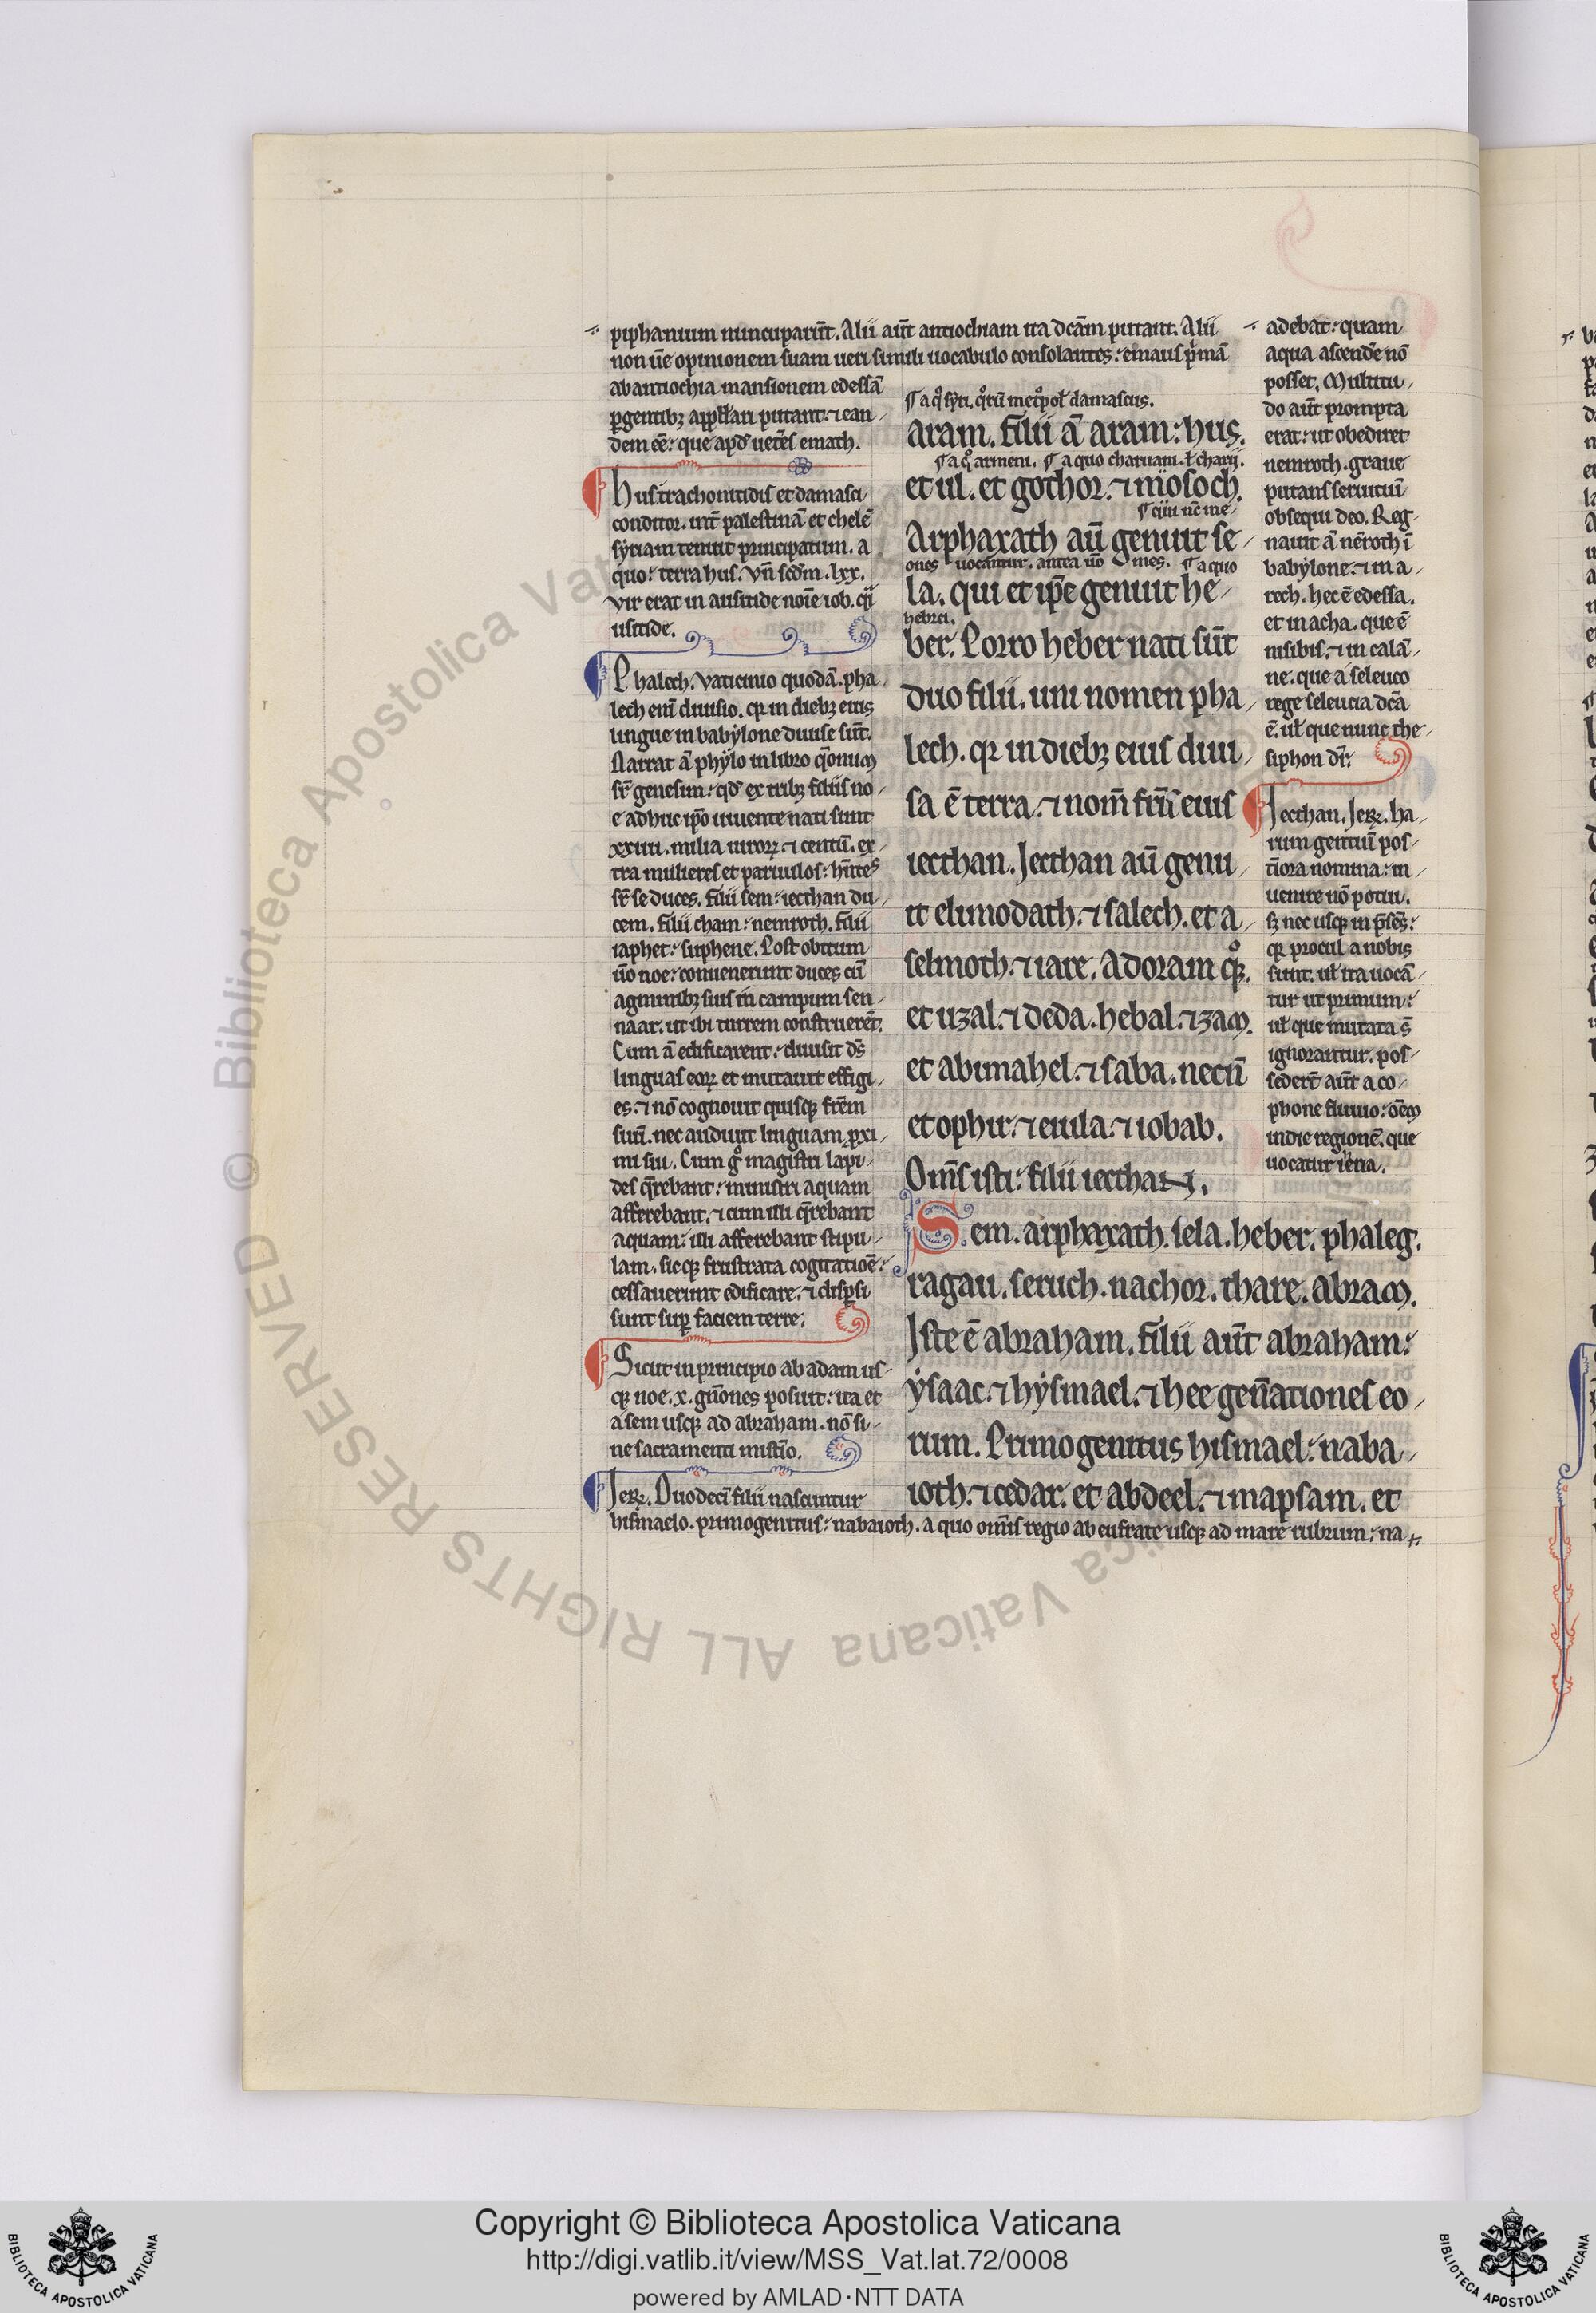 piphanium nuncuparūt. Alii aūt antiochiam ita dcām putant. Alii
non ūe opinionem suam ueri simili uocabulo consolantes: emaus p̄mā
ab antiochia mansionem edessā
ꝑgentibꝫ appłłari putant: ⁊ ean-
dem eē: que apđ uetes emath.
hus traconitidis et damasci
conditor. int̄ palestinā et chelē
syriam tenuit principatum. a
quo: terra hus. vn̄ scđm .lxx.
vir erat in ausitide noīe iob. q̄ii
usitide.
Phalech. Vaticinio quodā. pha-
lech enī diuisio. qꝛ in diebꝫ eius
lingue in babylone diuise sūt.
Narrat ā phylo in libro q̄onum
sr̄ genesim: qđ ex tribꝫ filiis no-
e adhuc ip̄o uiuente nati sunt
xxiiii. milia uiroꝝ ⁊ centū. ex-
tra mulieres et paruulos: hn̄tes
sr̄ se duces. filii sem: iecthan du-
cem. filii cham: nemroth. filii
iaphet: suphene. Post obitum
ūo noe: conuenerunt duces cū
agminibꝫ suis in campum sen-
naar. ut ibi turrem construerēt.
Cum ā edificarent: diuisit ds̄
linguas eoꝝ et mutauit effigi-
es. ⁊ nō cognouit quisqꝫ frēm
suū. nec audiuit linguam ꝓxi-
mi sui. Cum gͦ magistri lapi-
des q̄rebant: ministri aquam
afferebant. ⁊ cum illi q̄rebant
aquam: illi afferebant stipu-
lam. sicqꝫ frustrata cogitatioē:
cessauerunt edificare. ⁊ disꝑsi
sunt suꝑ faciem terre.
Sicut in principio ab adam us-
qꝫ noe .x. gn̄ones posuit: ita et
a sem usqꝫ ad abraham. nō si-
ne sacramenti mistīo.
Jeꝝ. Duodecī filii nascuntur
hismaelo. primogenitus: nabaioth. a quo omīs regio ab eufrate usqꝫ ad mare rubrum: na
¶ a qͦ syri. qͦrū metͦpoł damascus.
aram. filii ā aram: hus.
¶ a qͦ armeni. ¶ a quo charuani. ł charii.
et ul. et gothor. ⁊ mosoch.
Arphaxath aū genuit se-
ones uocantur. antea ūo mes. ¶ a quo
la. qui et ip̄e genuit he-
hebrei.
ber. Porro heber nati sūt
duo filii. uni nomen pha-
lech. qꝛ in diebꝫ eius diui-
sa ē terra. ⁊ nom̄ frīs eius
iecthan. Jecthan aū genu-
it elmodath. ⁊ salech. et a-
selmoth. ⁊ iare. Adoram qͦꝫ.
et uzal. ⁊ deda. hebal. ⁊ zam.
et abimahel. ⁊ saba. necū
et ophir. ⁊ euila. ⁊ iobab.
Omīs isti: filii iecthan.
Sem. arphaxath. sela. heber. phaleg.
ragau. seruch. nachor. thare. abram.
Iste ē abraham. filii aūt abraham:
ysaac. ⁊ hysmael. ⁊ hee gen̄ationes eo-
rum. Primogenitus hismael: naba-
ioth. ⁊ cedar. et abdeel. ⁊ mapsam. et
adebat: quam
aqua ascendē nō
posset. Multitu-
do aūt prompta
erat: ut obediret
nemroth. graue
putans seruitiū
obsequi deo. Reg-
nauit ā nēroth ī
babylone. ⁊ in a-
rech. hec ē edessa.
et in acha. que ē
nisibis. ⁊ in calā-
ne. que a seleuco
rege seleucia dcā
ē. uł que nunc the-
siphon dr̄.
Jecthan. Jeꝝ. ha-
rum gentiū pos-
tīora nomina: in-
uenire nō potui.
sꝫ nec usqꝫ in p̄sēs:
qꝛ procul a nobis
sunt. uł ita uocā-
tur ut primum:
uł que mutata s̄
ignorantur. pos-
sedert̄ aūt a co-
phone fluuio: oēm
indie regionē. que
uocatur ieria.
Copyright © Biblioteca Apostolica Vaticana
http://digi.vatlib.it/view/MSS_Vat.lat.72/0008
powered by AMLAD·NTT DATA